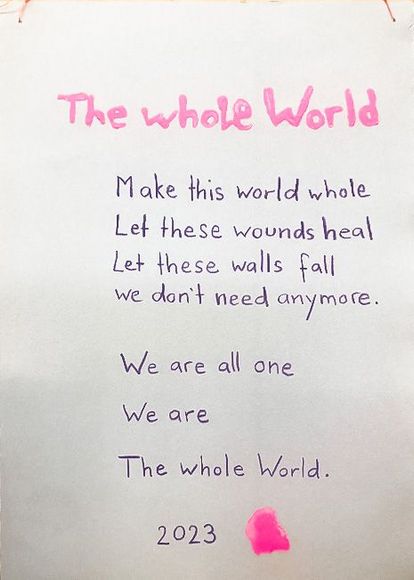 The whole World
Make this world whole
Let these wounds heal
Let these walls fall
we don't need anymore.
We are all one
We are
The whole World.
2023